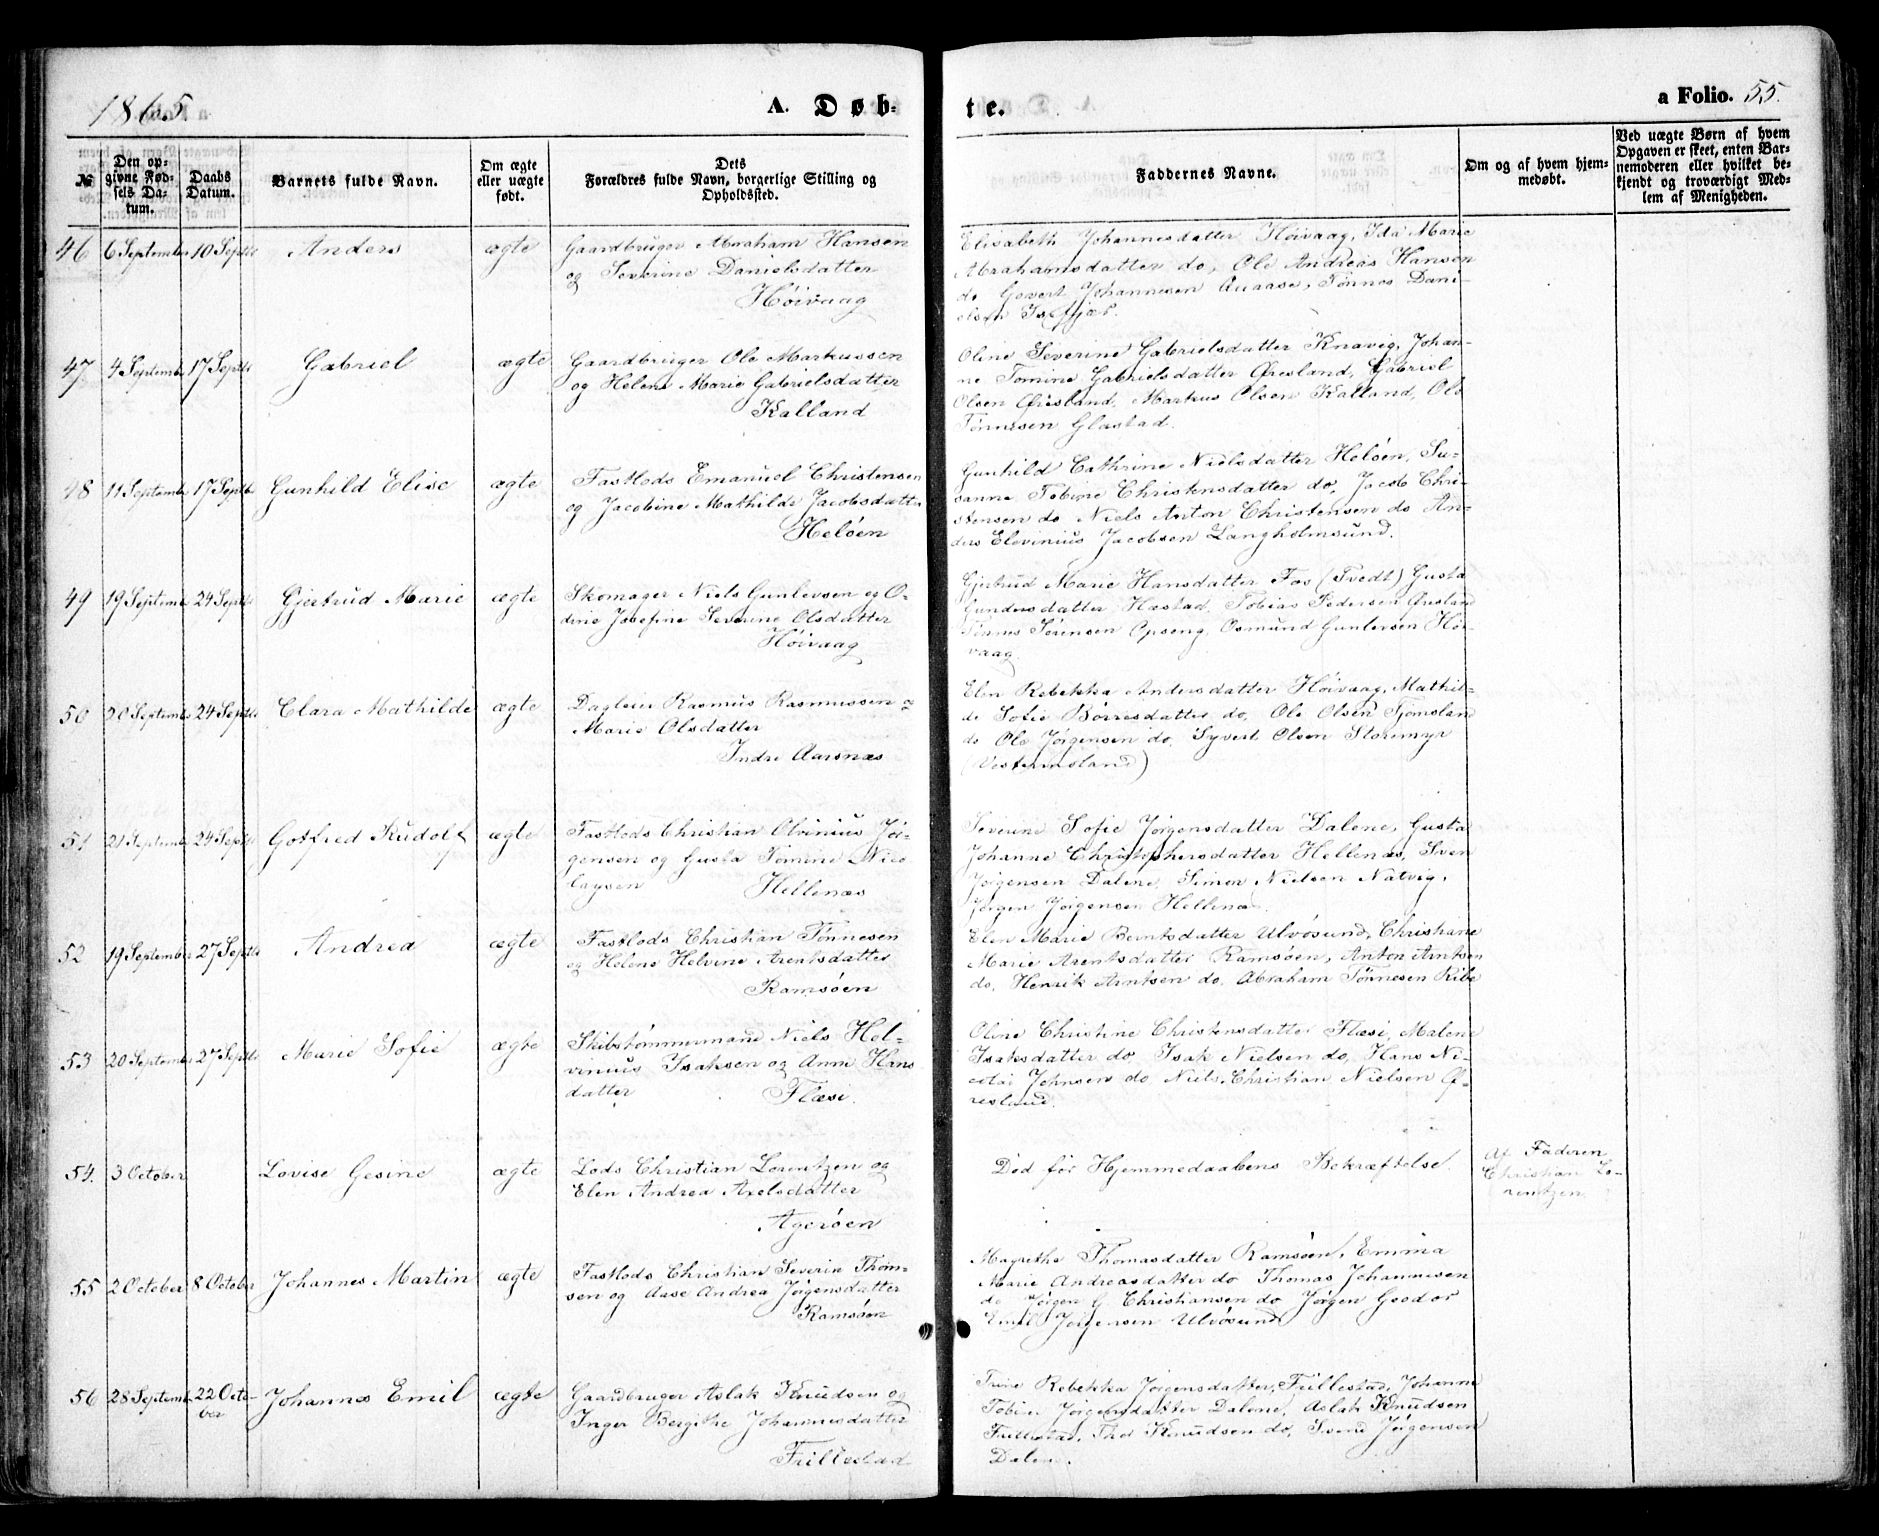 1865
A. Døb-
te.
a Folio. 55.
№
Den op-
givne Fød-
sels Da-
tum.
Daabs
Datum.
Barnets fulde Navn.
Om ægte
eller uægte
født.
Dets
Forældres fulde Navn, borgerlige Stilling og
Opholdssted.
Faddernes Navne.
Om og af hvem hjem-
medøbt.
Ved uægte Børn af hvem
Opgaven er skeet, enten Bar-
nemoderen eller hvilket be-
kjendt og troværdigt Med-
lem af Menigheden.
46 6 September 10 Septb Anders ægte
Gaardbruger Abraham Hansen
og Severine Danielsdatter
Høivaag
Elisabeth Johannesdatter Høivaag, Ida Marie
Abrahamsdatter do, Ole Andreas Hansen
do Govert Johannesen Tønnes Dani-
elsen Isefjær.
47 4 September 17 Septb Gabriel ægte
Gaardbruger Ole Markussen
og Helene Marie Gabrielsdatter
Kalland
Oline Severine Gabrielsdatter Knavig, Johan-
ne Tomine Gabrielsdatter Øresland, Gabriel
Olsen Øresland, Markus Olsen Kalland, Ole
Tønnesen Glastad.
48 11 September 17 Septbr Gunhild Elise ægte
Fastlods Emanuel Christensen
og Jacobine Mathilde Jacobsdatter
Heløen
Gunhild Cathrine Nielsdatter Heløen, Su-
sanne Tobine Christensdatter do, Jacob Chri-
stensen do Niels Anton Christensen do An-
ders Elevinius Jacobsen Langholmsund.
49 19 September 24 Septb Gjertrud Marie ægte
Skomager Niels Gunlevsen og O-
dine Josefine Severine Olsdatter
Høivaag
Gjertrud Marie Hansdatter Fos (Tvedt) Gusta
Gundersdatter Hæstad, Tobias Pedersen Øresland
Tønnes Sørensen Opseng, Osmund Gunlevsen Høi-
vaag
50 20 September 24 Septb Clara Mathilde ægte
Dagleier Rasmus Rasmussen og
Marie Olsdatter
Indre Aarsnæs
Elen Rebekka Andersdatter Høivaag, Mathil-
de Sofie Børresdatter do, Ole Olsen Tjomsland
do Ole Jørgensen do, Syvert Olsen Storemyr
(Vesterinsland)
51 21 September 24 Septb Gotfred Rudolf ægte
Fastlods Christian Olvinius Jør-
gensen og Gusta Tomine Nico-
laysen Hellenæs
Severine Sofie Jørgensdatter Dalene, Gusta
Johanne Christophersdatter Hellenæs, Sven
Jørgensen Dalene, Simon Nielsen Natvig,
Jørgen Jørgensen Hellenæs.
52 19 September 27 Septb Andrea ægte
Fastlods Christian Tønnesen
og Helene Helvine Arentsdatter
Ramsøen
Elen Marie Berntsdatter Ulvøsund, Christiane
Marie Arentsdatter Ramsøen, Anton Arntsen
do, Henrik Arntsen do, Abraham Tønnesen Ribe
53 20 September 27 Septb Marie Sofie ægte
Skibstømmermand Niels Hel-
vinius Isaksen og Anne Hans
datter Flæsi.
Oline Christine Christensdatter Flæsi, Malene
Isaksdatter do, Isak Nielsen do, Hans Ni-
colai Johnsen do, Niels Christian Nielsen Ø-
resland.
54. 3 October Lovise Gesine ægte
Lods Christian Lorentzen og
Elen Andrea Axelsdatter
Agerøen
Død før Hjemmedaabens Bekræftelse.
Af Faderen
Christian Lo-
rentzen
55 2 October 8 October Johannes Martin ægte
Fastlods Christian Severin Thom-
sen og Aase Andrea Jørgensdatter
Ramsøen
Magrethe Thomasdatter Ramsøen, Emma
Marie Andreasdatter do Thomas Johannesen
do Jørgen G. Christiansen do Jørgen Geodor
Emil Jørgensen Ulvøsund
56 28 September 22 Octo-
ber Johannes Emil ægte
Gaardbruger Aslak Knudsen og
Inger Bergithe Johannesdatter
Frillestad
Trine Rebekka Jørgensdatter, Frillestad, Johanne
Tobine Jørgensdatter Dalene, Aslak Knudsen
Frillestad, Thor Knudsen do, Svend Jørgensen
Dalene.